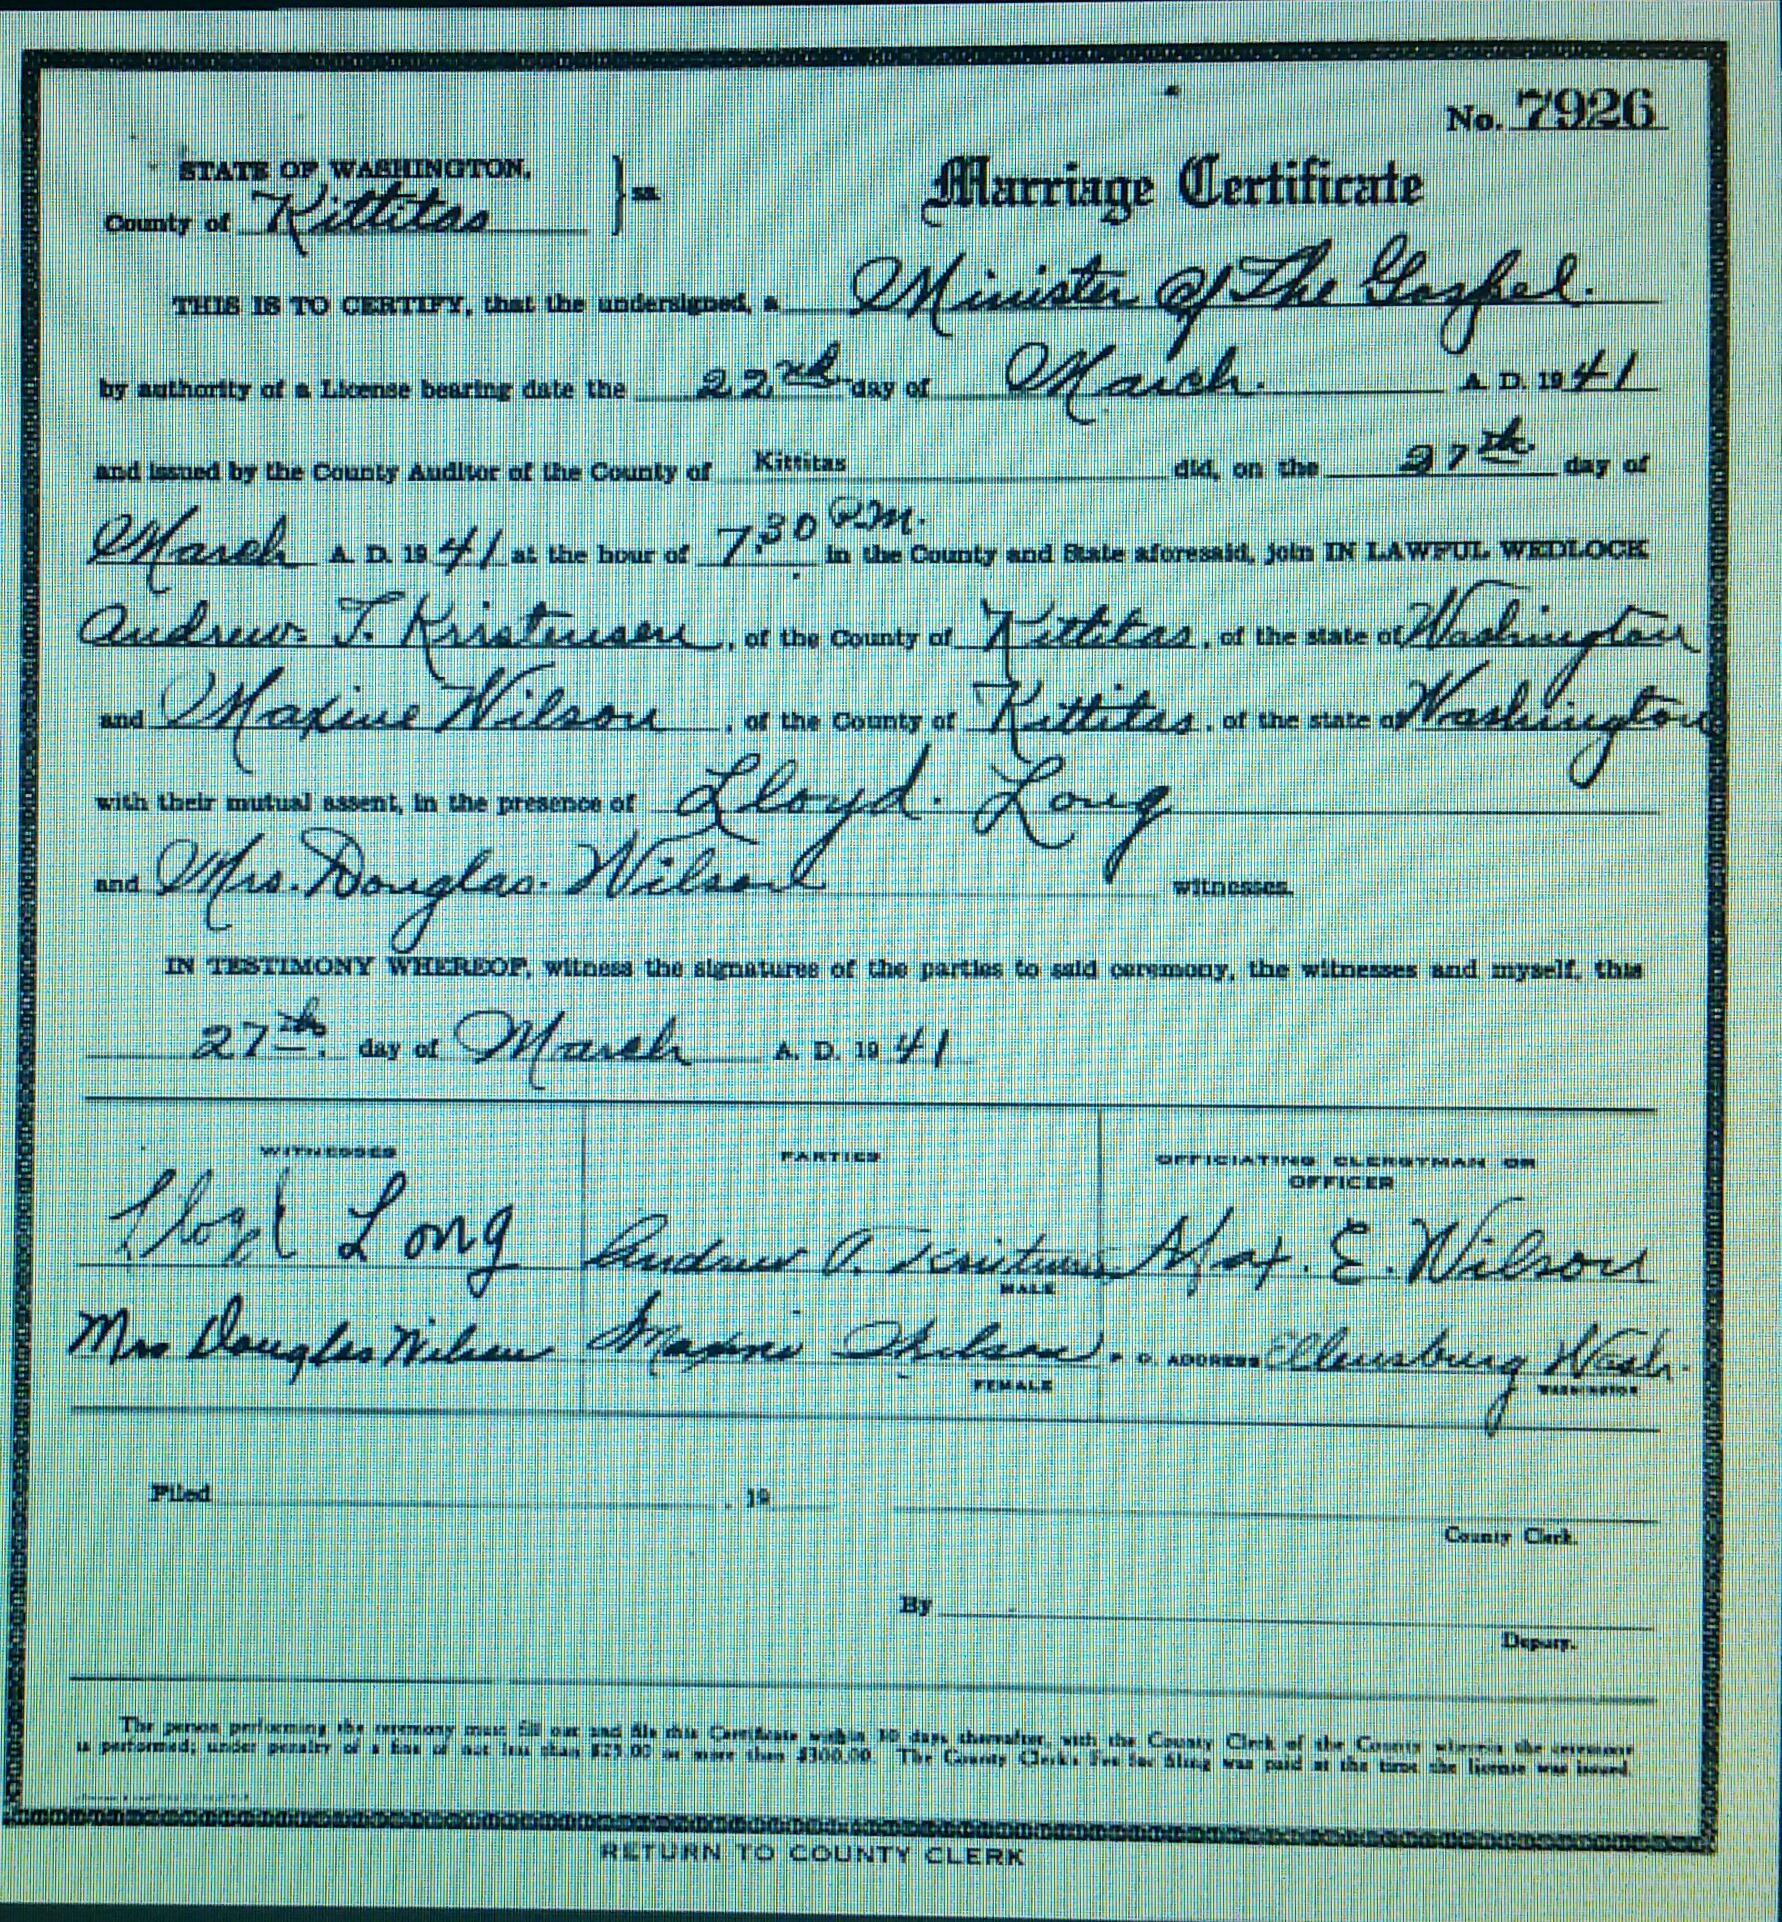 No. 7926
STATE OF WASHINGTON,
County of Kittitas } ss
Marriage Certificate
THIS IS TO CERTIFY, that the undersigned, a Minister of The Gospel.
by authority of a License bearing date the 22nd day of March. A. D. 1941
and issued by the County Auditor of the County of Kittitas did, on the 27th day of
March A. D. 1941 at the hour of 7:30 P.M. in the County and State aforesaid, join IN LAWFUL WEDLOCK
Andrew T. Kristensen, of the County of Kittitas, of the state of Washington
and Maxine Wilson, of the County of Kittitas, of the state of Washington
with their mutual assent, in the presence of Lloyd Long
and Mrs. Douglas Wilson witnesses.
IN TESTIMONY WHEREOF, witness the signatures of the parties to said ceremony, the witnesses and myself, this
27th day of March A. D. 1941
WITNESSES
PARTIES
OFFICIATING CLERGYMAN OR
OFFICER
Lloyd Long
Andrew Kristensen
MALE
Max. E. Wilson
Mrs Douglas Wilson
Maxine Wilson
FEMALE
P. O. ADDRESS Ellensburg Wash.
WASHINGTON
Filed , 19
County Clerk.
By
Deputy.
The person performing the ceremony must fill out and file this Certificate within 30 days thereafter, with the County Clerk of the County wherein the ceremony
is performed; under penalty of a fine of not less than $25.00 or more than $300.00. The County Clerk's Fee for filing was paid at the time the license was issued.
RETURN TO COUNTY CLERK